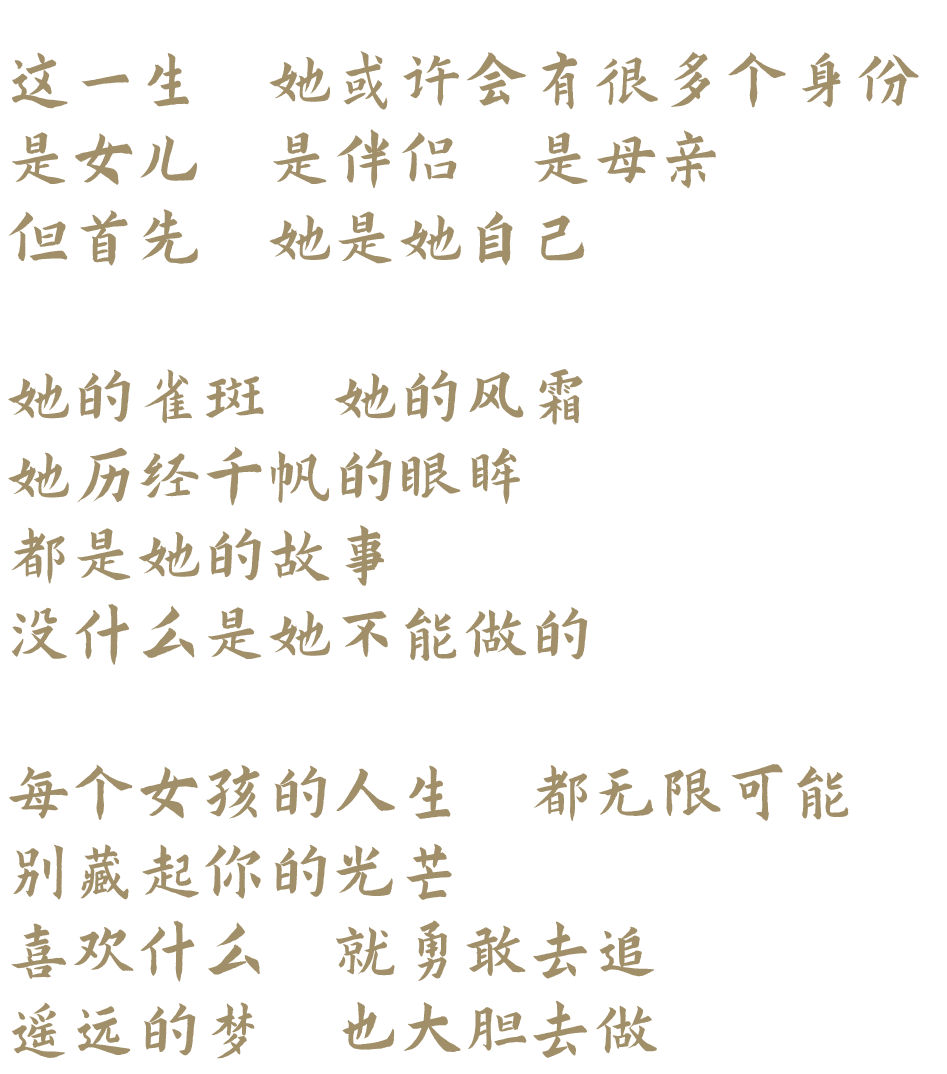 这一生 她或许会有很多个身份
是女儿 是伴侣 是母亲
但首先 她是她自己
她的雀斑 她的风霜
她历经千帆的眼眸
都是她的故事
没什么是她不能做的
每个女孩的人生 都无限可能
别藏起你的光芒
喜欢什么 就勇敢去追
遥远的梦 也大胆去做